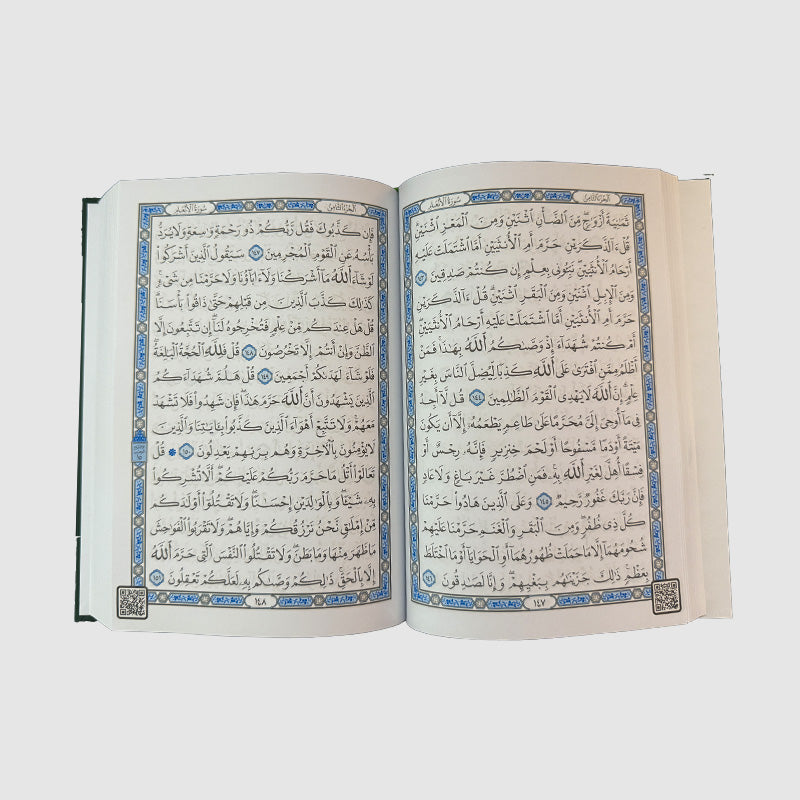 الجزء الثامن
سورة الأنعام
ثَمَٰنِيَةَ أَزْوَٰجٍ مِّنَ ٱلضَّأْنِ ٱثْنَيْنِ وَمِنَ ٱلْمَعْزِ ٱثْنَيْنِ
قُلْ ءَآلذَّكَرَيْنِ حَرَّمَ أَمِ ٱلْأُنثَيَيْنِ أَمَّا ٱشْتَمَلَتْ عَلَيْهِ
أَرْحَامُ ٱلْأُنثَيَيْنِ نَبِّـُٔونِى بِعِلْمٍ إِن كُنتُمْ صَٰدِقِينَ ١٤٣
وَمِنَ ٱلْإِبِلِ ٱثْنَيْنِ وَمِنَ ٱلْبَقَرِ ٱثْنَيْنِ قُلْ ءَآلذَّكَرَيْنِ
حَرَّمَ أَمِ ٱلْأُنثَيَيْنِ أَمَّا ٱشْتَمَلَتْ عَلَيْهِ أَرْحَامُ ٱلْأُنثَيَيْنِ
أَمْ كُنتُمْ شُهَدَآءَ إِذْ وَصَّىٰكُمُ ٱللَّهُ بِهَٰذَا فَمَنْ
أَظْلَمُ مِمَّنِ ٱفْتَرَىٰ عَلَى ٱللَّهِ كَذِبًا لِّيُضِلَّ ٱلنَّاسَ بِغَيْرِ
عِلْمٍ إِنَّ ٱللَّهَ لَا يَهْدِى ٱلْقَوْمَ ٱلظَّٰلِمِينَ ١٤٤ قُل لَّآ أَجِدُ
فِى مَآ أُوحِىَ إِلَىَّ مُحَرَّمًا عَلَىٰ طَاعِمٍ يَطْعَمُهُۥٓ إِلَّآ أَن يَكُونَ
مَيْتَةً أَوْ دَمًا مَّسْفُوحًا أَوْ لَحْمَ خِنزِيرٍ فَإِنَّهُۥ رِجْسٌ أَوْ
فِسْقًا أُهِلَّ لِغَيْرِ ٱللَّهِ بِهِۦ فَمَنِ ٱضْطُرَّ غَيْرَ بَاغٍ وَلَا عَادٍ
فَإِنَّ رَبَّكَ غَفُورٌ رَّحِيمٌ ١٤٥ وَعَلَى ٱلَّذِينَ هَادُوا۟ حَرَّمْنَا
كُلَّ ذِى ظُفُرٍ وَمِنَ ٱلْبَقَرِ وَٱلْغَنَمِ حَرَّمْنَا عَلَيْهِمْ
شُحُومَهُمَآ إِلَّا مَا حَمَلَتْ ظُهُورُهُمَآ أَوِ ٱلْحَوَايَآ أَوْ مَا ٱخْتَلَطَ
بِعَظْمٍ ذَٰلِكَ جَزَيْنَٰهُم بِبَغْيِهِمْ وَإِنَّا لَصَٰدِقُونَ ١٤٦
١٤٧
الجزء الثامن
سورة الأنعام
فَإِن كَذَّبُوكَ فَقُل رَّبُّكُمْ ذُو رَحْمَةٍ وَٰسِعَةٍ وَلَا يُرَدُّ
بَأْسُهُۥ عَنِ ٱلْقَوْمِ ٱلْمُجْرِمِينَ ١٤٧ سَيَقُولُ ٱلَّذِينَ أَشْرَكُوا۟
لَوْ شَآءَ ٱللَّهُ مَآ أَشْرَكْنَا وَلَآ ءَابَآؤُنَا وَلَا حَرَّمْنَا مِن شَىْءٍ
كَذَٰلِكَ كَذَّبَ ٱلَّذِينَ مِن قَبْلِهِمْ حَتَّىٰ ذَاقُوا۟ بَأْسَنَا
قُلْ هَلْ عِندَكُم مِّنْ عِلْمٍ فَتُخْرِجُوهُ لَنَآ إِن تَتَّبِعُونَ إِلَّا
ٱلظَّنَّ وَإِنْ أَنتُمْ إِلَّا تَخْرُصُونَ ١٤٨ قُلْ فَلِلَّهِ ٱلْحُجَّةُ ٱلْبَٰلِغَةُ
فَلَوْ شَآءَ لَهَدَىٰكُمْ أَجْمَعِينَ ١٤٩ قُلْ هَلُمَّ شُهَدَآءَكُمُ
ٱلَّذِينَ يَشْهَدُونَ أَنَّ ٱللَّهَ حَرَّمَ هَٰذَا فَإِن شَهِدُوا۟ فَلَا تَشْهَدْ
مَعَهُمْ وَلَا تَتَّبِعْ أَهْوَآءَ ٱلَّذِينَ كَذَّبُوا۟ بِـَٔايَٰتِنَا وَٱلَّذِينَ
لَا يُؤْمِنُونَ بِٱلْءَاخِرَةِ وَهُم بِرَبِّهِمْ يَعْدِلُونَ ١٥٠ ۞ قُلْ
تَعَالَوْا۟ أَتْلُ مَا حَرَّمَ رَبُّكُمْ عَلَيْكُمْ أَلَّا تُشْرِكُوا۟
بِهِۦ شَيْـًٔا وَبِٱلْوَٰلِدَيْنِ إِحْسَٰنًا وَلَا تَقْتُلُوٓا۟ أَوْلَٰدَكُم
مِّنْ إِمْلَٰقٍ نَّحْنُ نَرْزُقُكُمْ وَإِيَّاهُمْ وَلَا تَقْرَبُوا۟ ٱلْفَوَٰحِشَ
مَا ظَهَرَ مِنْهَا وَمَا بَطَنَ وَلَا تَقْتُلُوا۟ ٱلنَّفْسَ ٱلَّتِى حَرَّمَ ٱللَّهُ
إِلَّا بِٱلْحَقِّ ذَٰلِكُمْ وَصَّىٰكُم بِهِۦ لَعَلَّكُمْ تَعْقِلُونَ ١٥١
١٤٨